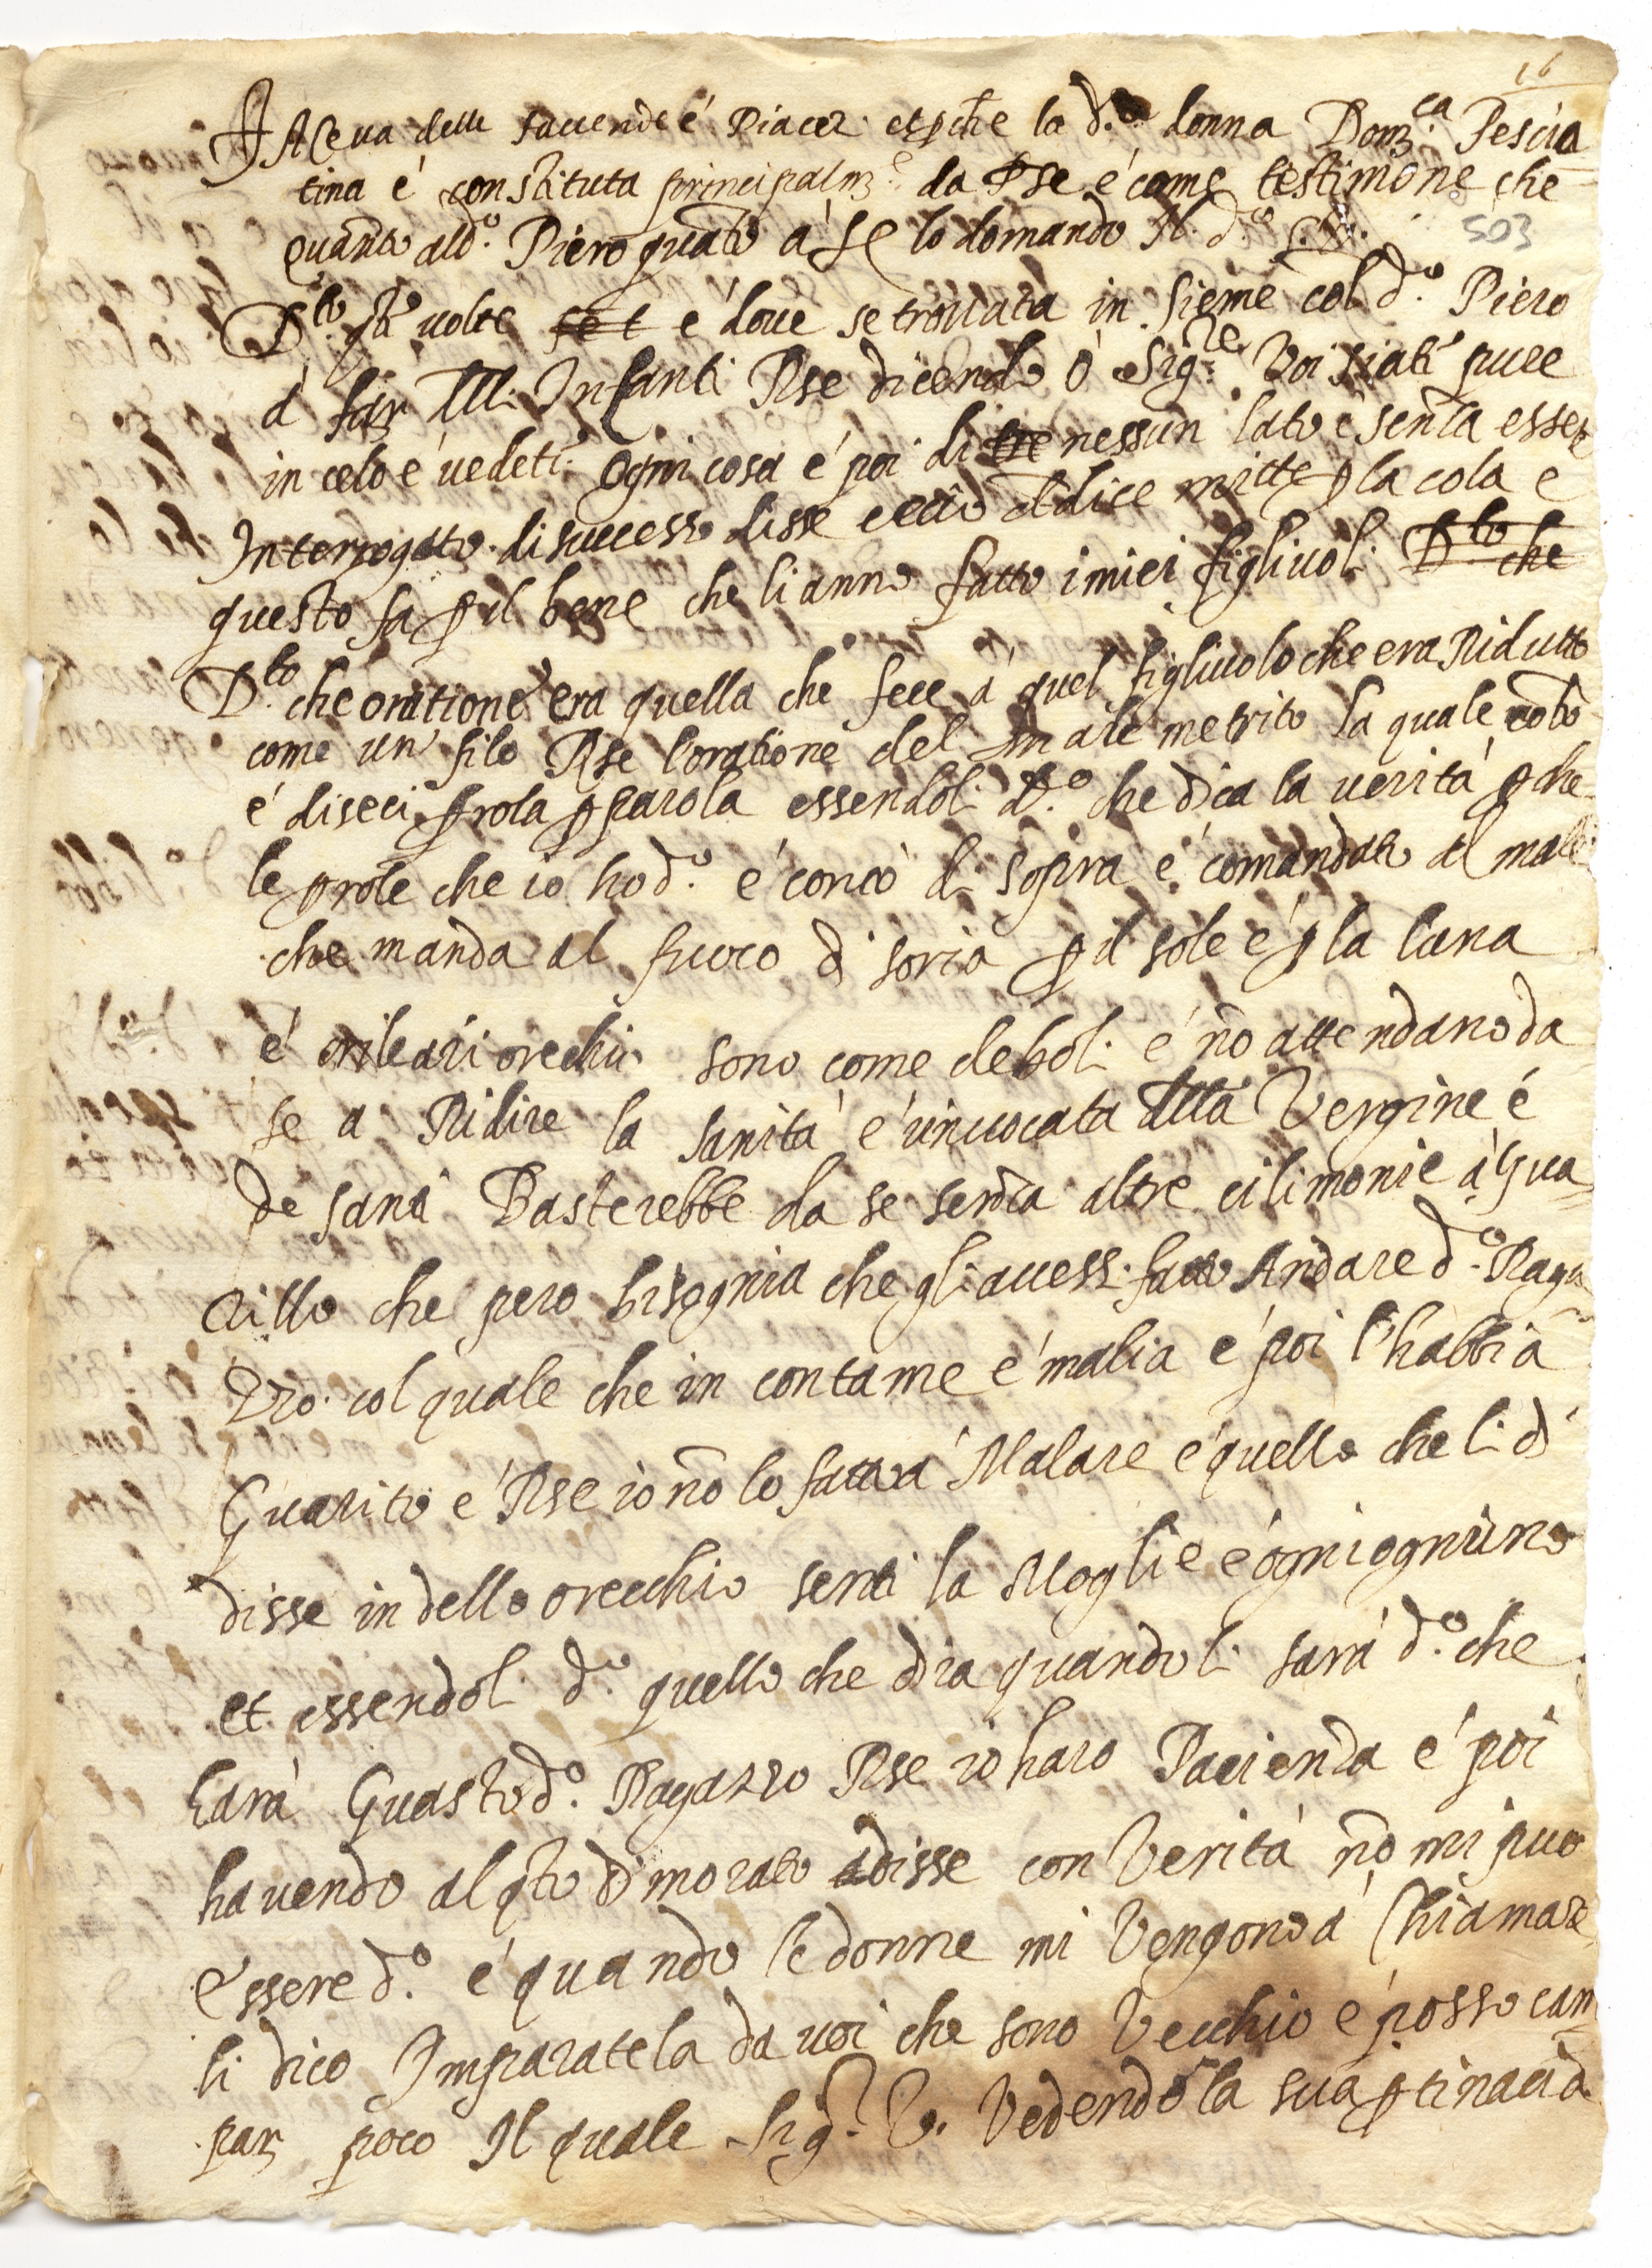 16
FAceva delle faccende é Piacer et pche la d.a donna Domca Pescia
tina é constituta principalmte da Pse é come testimone che
quanto ald.o Piero quāto á se lo domando Il d.o S. V.
503
Dto qte volte se t é dove se trovata in sieme col d.o Piero
á far Ill. Infanti Rse dicendo ó Sigre Voi siati pure
in celo é vedeti ogni cosa é poi di tre nessun lato é senza esser
Interrogato di successo disse mitte p la cola e
questo fa p il bene che li anno fatto i miei figlivoli Dto che
Dto che oratione era quella che fece á quel figlivolo che era Ridutto
come un filo Rse loratione del male metrito la quale
é diseci prola p parola essendoli d.o che dica la verità pche
le prole che io ho d.o é conció di sopra é comandato al male
che manda al fuoco di soria p il sole é p la luna
é orecchio sono come deboli é nō attendano da
se a Ridire la sanità é invocata alla Vergine é
de sana Basterebbe da se senza altre cilimonie á Gua
rillo che pero bisognia che gli avessi fatto Andare d.o Raga
zzo col quale che in contame é malia é poi l'habbia
Guarito é Rse io nō lo fatto á Malare é quello che li di
disse in dello orecchio sentí la Moglie é ogni ognuno
et essendoli d.o quello che dira quando li sará d.o che
hará Guasto d.o Ragazzo Rse io haro Pacienza é poi
havendo alqto dimorato disse con Verità nō mi puo
Essere d.o é quando le donne mi Vengono á Chiamare
li dico Imparatela da voi che sono Vecchio é posso cam
par poco Il quale Sig.r V. Vedendo la sua ptinacia